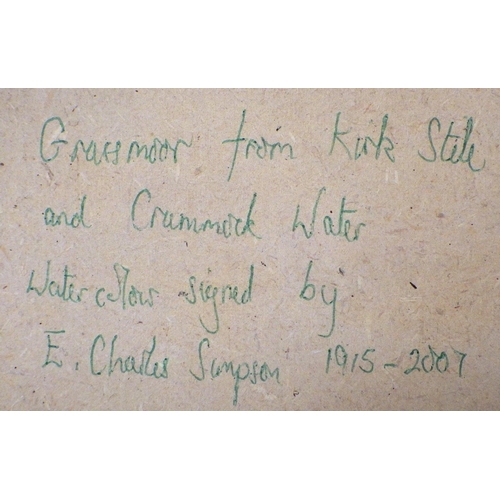 Grassmoor from Kirk Stile
and Crummock Water
Watercolour signed by
E. Charles Simpson 1915-2007